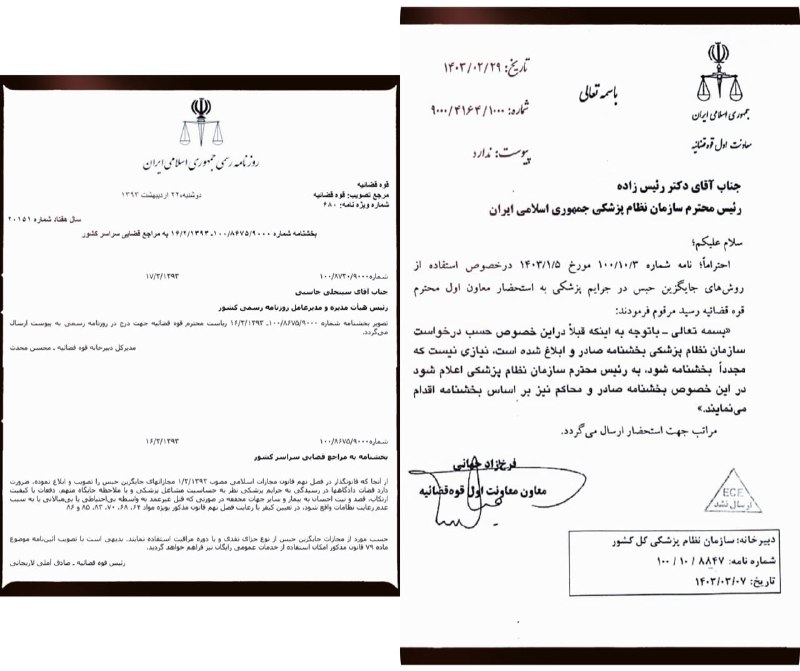 روزنامه رسمی جمهوری اسلامی ایران
قوه قضائیه
مرجع تصویب: قوه قضائیه
شماره ویژه نامه: ۶۸۰
دوشنبه،۲۲ اردیبهشت ۱۳۹۳
سال هفتاد شماره ۲۰۱۵۱
بخشنامه شماره ۱۰۰/۸۶۷۵/۹۰۰۰ـ ۱۶/۲/۱۳۹۳ به مراجع قضایی سراسر کشور
شماره۱۰۰/۸۷۳۰/۹۰۰۰
۱۷/۲/۱۳۹۳
جناب آقای سینجلی جاسبی
رئیس هیأت مدیره و مدیرعامل روزنامه رسمی کشور
تصویر بخشنامه شماره ۱۰۰/۸۶۷۵/۹۰۰۰ـ ۱۶/۲/۱۳۹۳ ریاست محترم قوه قضائیه جهت درج در روزنامه رسمی به پیوست ارسال
می‌گردد.
مدیرکل دبیرخانه قوه قضائیه ـ محسن محدث
شماره۱۰۰/۸۶۷۵/۹۰۰۰
۱۶/۲/۱۳۹۳
بخشنامه به مراجع قضایی سراسر کشور
از آنجا که قانونگذار در فصل نهم قانون مجازات اسلامی مصوب ۱/۲/۱۳۹۲ مجازاتهای جایگزین حبس را تصویب و ابلاغ نموده، ضرورت
دارد قضات دادگاهها در رسیدگی به جرایم پزشکی نظر به حساسیت مشاغل پزشکی و با ملاحظه جایگاه متهم، دفعات یا کیفیت
ارتکاب، قصد و نیت احسان به بیمار و سایر جهات مخففه در صورتی که قتل غیرعمد به واسطه بی‌احتیاطی یا بی‌مبالاتی یا به سبب
عدم رعایت نظامات واقع شود، در تعیین کیفر با رعایت فصل نهم قانون مذکور بویژه مواد ۶۴، ۶۸، ۷۰، ۸۳، ۸۵ و ۸۶
حسب مورد از مجازات جایگزین حبس از نوع جزای نقدی و یا دوره مراقبت استفاده نمایند. بدیهی است با تصویب آئین‌نامه موضوع
ماده ۷۹ قانون مذکور امکان استفاده از خدمات عمومی رایگان نیز فراهم خواهد گردید.
رئیس قوه قضائیه ـ صادق آملی لاریجانی
جمهوری اسلامی ایران
معاونت اول قوه قضائیه
باسمه تعالی
تاریخ: ۱۴۰۳/۰۲/۲۹
شماره: ۹۰۰۰/۴۱۶۴/۱۰۰۰
پیوست: ندارد
جناب آقای دکتر رئیس زاده
رئیس محترم سازمان نظام پزشکی جمهوری اسلامی ایران
سلام علیکم؛
احتراماً؛ نامه شماره ۱۰۰/۱۰/۳ مورخ ۱۴۰۳/۱/۵ درخصوص استفاده از
روش‌های جایگزین حبس در جرایم پزشکی به استحضار معاون اول محترم
قوه قضائیه رسید مرقوم فرمودند:
«بسمه تعالی ـ باتوجه به اینکه قبلاً دراین خصوص حسب درخواست
سازمان نظام پزشکی بخشنامه صادر و ابلاغ شده است، نیازی نیست که
مجدداً بخشنامه شود، به رئیس محترم سازمان نظام پزشکی اعلام شود
در این خصوص بخشنامه صادر و محاکم نیز بر اساس بخشنامه اقدام
می‌نمایند.»
مراتب جهت استحضار ارسال می‌گردد.
فرخ‌زاد جهانی
معاون معاونت اول قوه‌قضائیه
ECE
ارسال نشد
دبیرخانه: سازمان نظام پزشکی کل کشور
شماره نامه: ۸۸۴۷ / ۱۰ / ۱۰۰
تاریخ: ۱۴۰۳/۰۳/۰۷